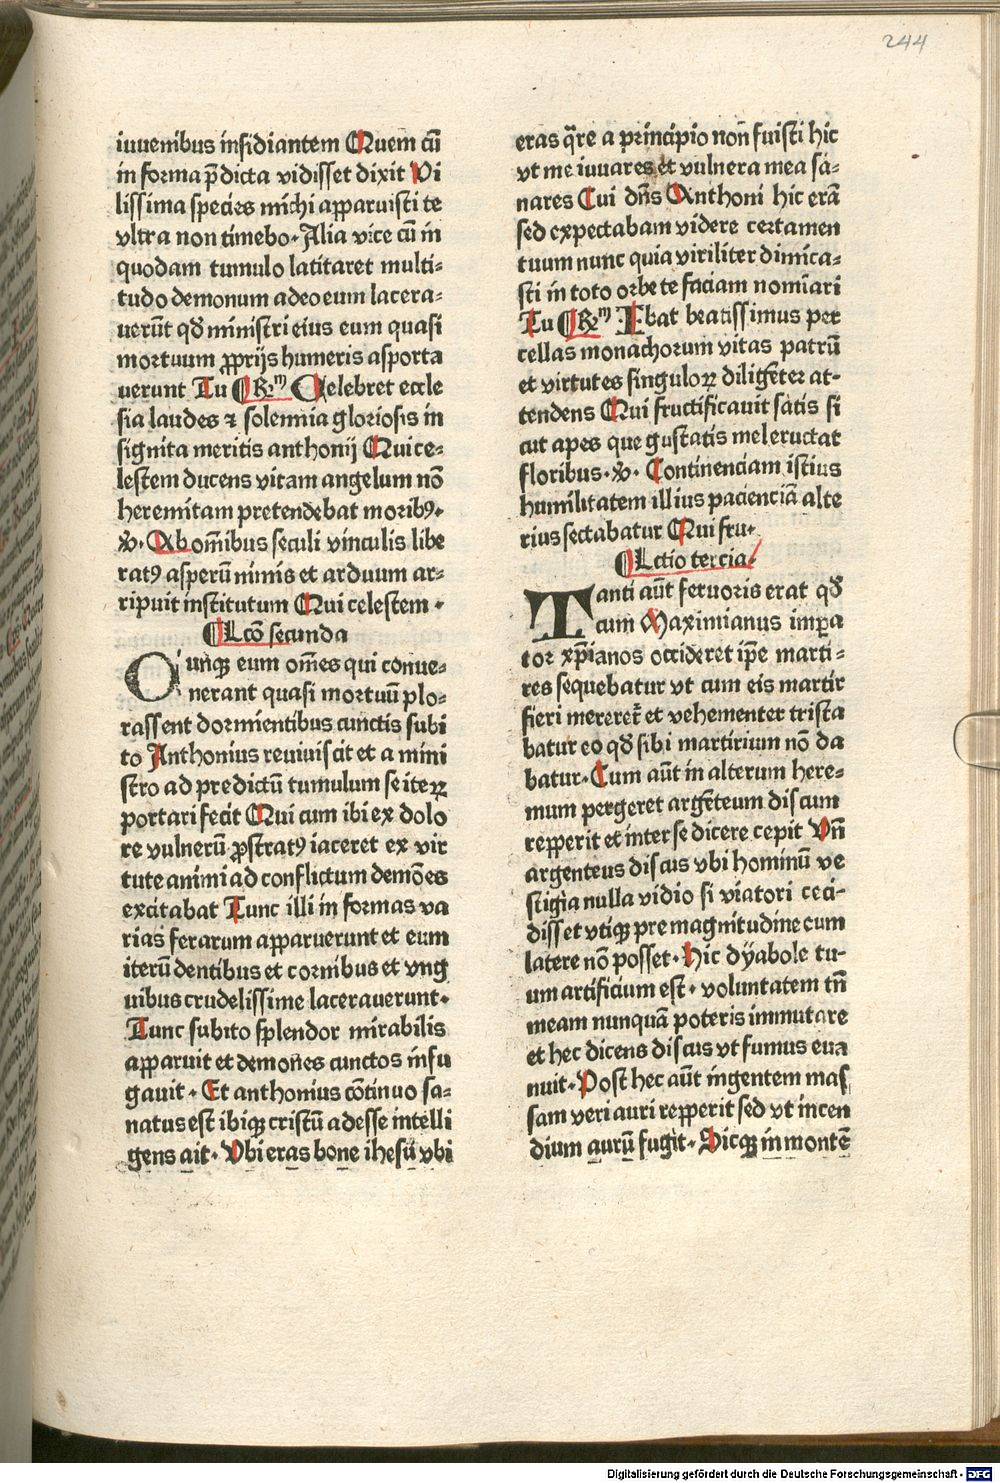 244
iuuenibus insidiantem Quem cū
in forma p̄dicta vidisset dixit Vi
lissima species michi apparuisti te
vltra non timebo. Alia vice cū in
quodam tumulo latitaret multi-
tudo demonum adeo eum lacera-
uerūt qđ ministri eius eum quasi
mortuum ꝓprijs humeris asporta
uerunt Tu Rm Celebret eccle
sia laudes ⁊ solemnia gloriosis in
signita meritis anthonij Qui ce-
lestem ducens vitam angelum nō
heremitam pretendebat moribꝰ.
℣. Ab om̄ibus seculi vinculis libe
ratꝰ asperū nimis et arduum ar-
ripuit institutum Qui celestem.
Lcō secunda
Cunqꝫ eum om̄es qui conue-
nerant quasi mortuū plo-
rassent dormientibus cunctis subi
to Anthonius reuiuiscit et a mini
stro ad predictū tumulum se iteꝝ
portari fecit Qui cum ibi ex dolo
re vulnerū ꝓstratꝰ iaceret ex vir
tute animi ad conflictum demōes
excitabat Tunc illi in formas va
rias ferarum apparuerunt et eum
iterū dentibus et cornibus et vng
uibus crudelissime lacerauerunt.
Tunc subito splendor mirabilis
apparuit et demon̄es cunctos infu
gauit. Et anthonius cōtinuo sa-
natus est ibiqꝫ cristū adesse intelli
gens ait. Vbi eras bone ihesū vbi
eras q̄re a principio non fuisti hic
vt me iuuares et vulnera mea sa-
nares Cui dn̄s Anthoni hic erā
sed expectabam videre certamen
tuum nunc quia viriliter dimica-
sti in toto orbe te faciam nomīari
Tu Rm Ibat beatissimus per
cellas monachorum vitas patrū
et virtutes singuloꝝ diligēter at-
tendens Qui fructificauit satis si
cut apes que gustatis mel eructat
floribus. ℣. Continenciam istius
humilitatem illius pacienciā alte
rius sectabatur Qui fru.
Lctio tercia
Tanti aūt feruoris erat qđ
cum Maximianus imꝑa
tor xp̄ianos occideret ip̄e marti-
res sequebatur vt cum eis martir
fieri mereret᷑ et vehementer trista
batur eo qđ sibi martirium nō da
batur. Cum aūt in alterum here-
mum pergeret argēteum discum
repperit et inter se dicere cepit Vn̄
argenteus discus vbi hominū ve
stigia nulla vidio si viatori ceci-
disset vtiqꝫ pre magnitudine cum
latere nō posset. Hic dÿabole tu-
um artificium est. voluntatem tn̄
meam nunquā poteris immutare
et hec dicens discus vt fumus eua
nuit. Post hec aūt ingentem mas
sam veri auri repperit sed vt incen
dium aurū fugit. Sicqꝫ in montē
Digitalisierung gefördert durch die Deutsche Forschungsgemeinschaft - DFG